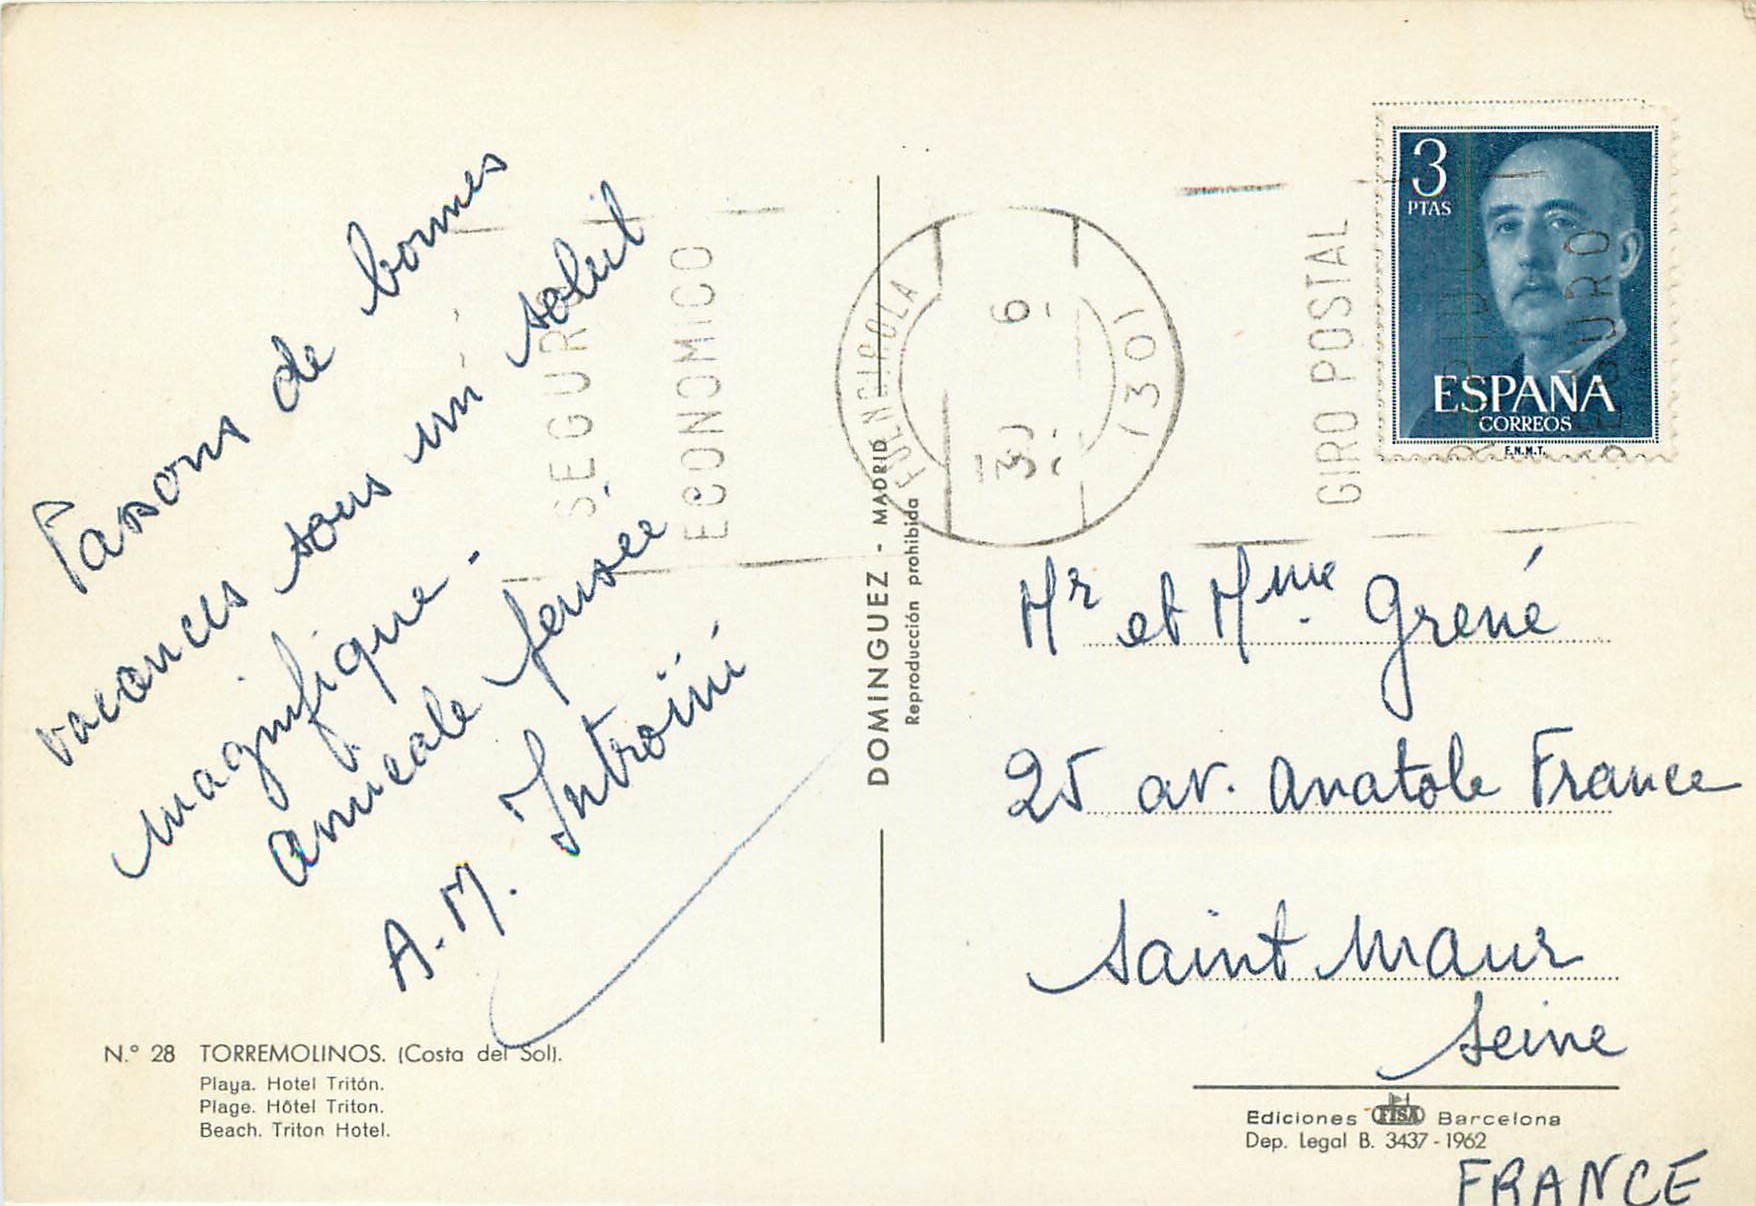 Passons de bonnes
vacances sous un soleil
magnifique.
Amicale pensée
A.M. Introïni
N.º 28 TORREMOLINOS. (Costa del Sol).
Playa. Hotel Tritón.
Plage. Hôtel Triton.
Beach. Triton Hotel.
DOMINGUEZ - MADRID
Reproducción prohibida
SEGURO
ECONOMICO
FUENGIROLA
1301
GIRO POSTAL
SEGURO
3
PTAS
ESPAÑA
CORREOS
F.N.M.T.
Mr et Mme. Grené
25 av. Anatole France
Saint Maur
Seine
Ediciones FISA Barcelona
Dep. Legal B. 3437-1962
FRANCE